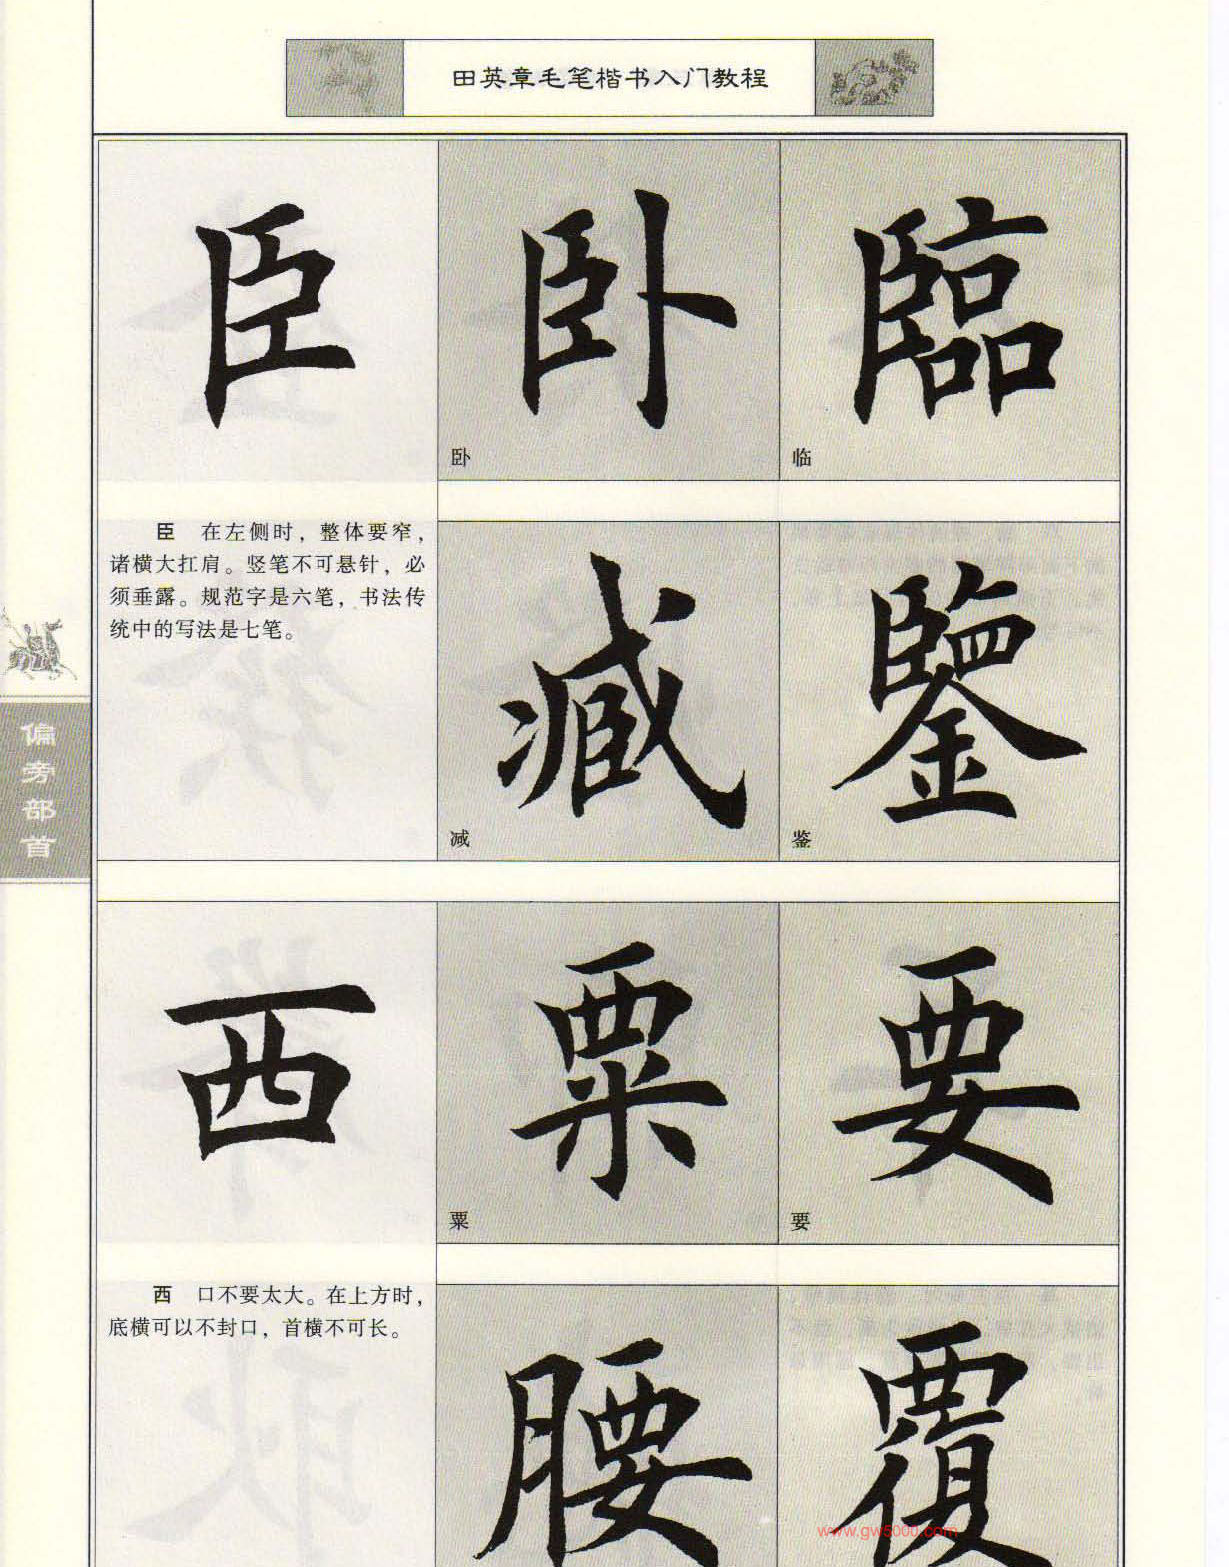 田英章毛笔楷书入门教程
臣 卧 臨
卧 临
臣 在左侧时，整体要窄，
诸横大扛肩。竖笔不可悬针，必
须垂露。规范字是六笔，书法传
统中的写法是七笔。
鑒
减 鉴
偏旁部首
西 粟 要
粟 要
西 口不要太大。在上方时，
底横可以不封口，首横不可长。
腰 覆
www.gw5000.com